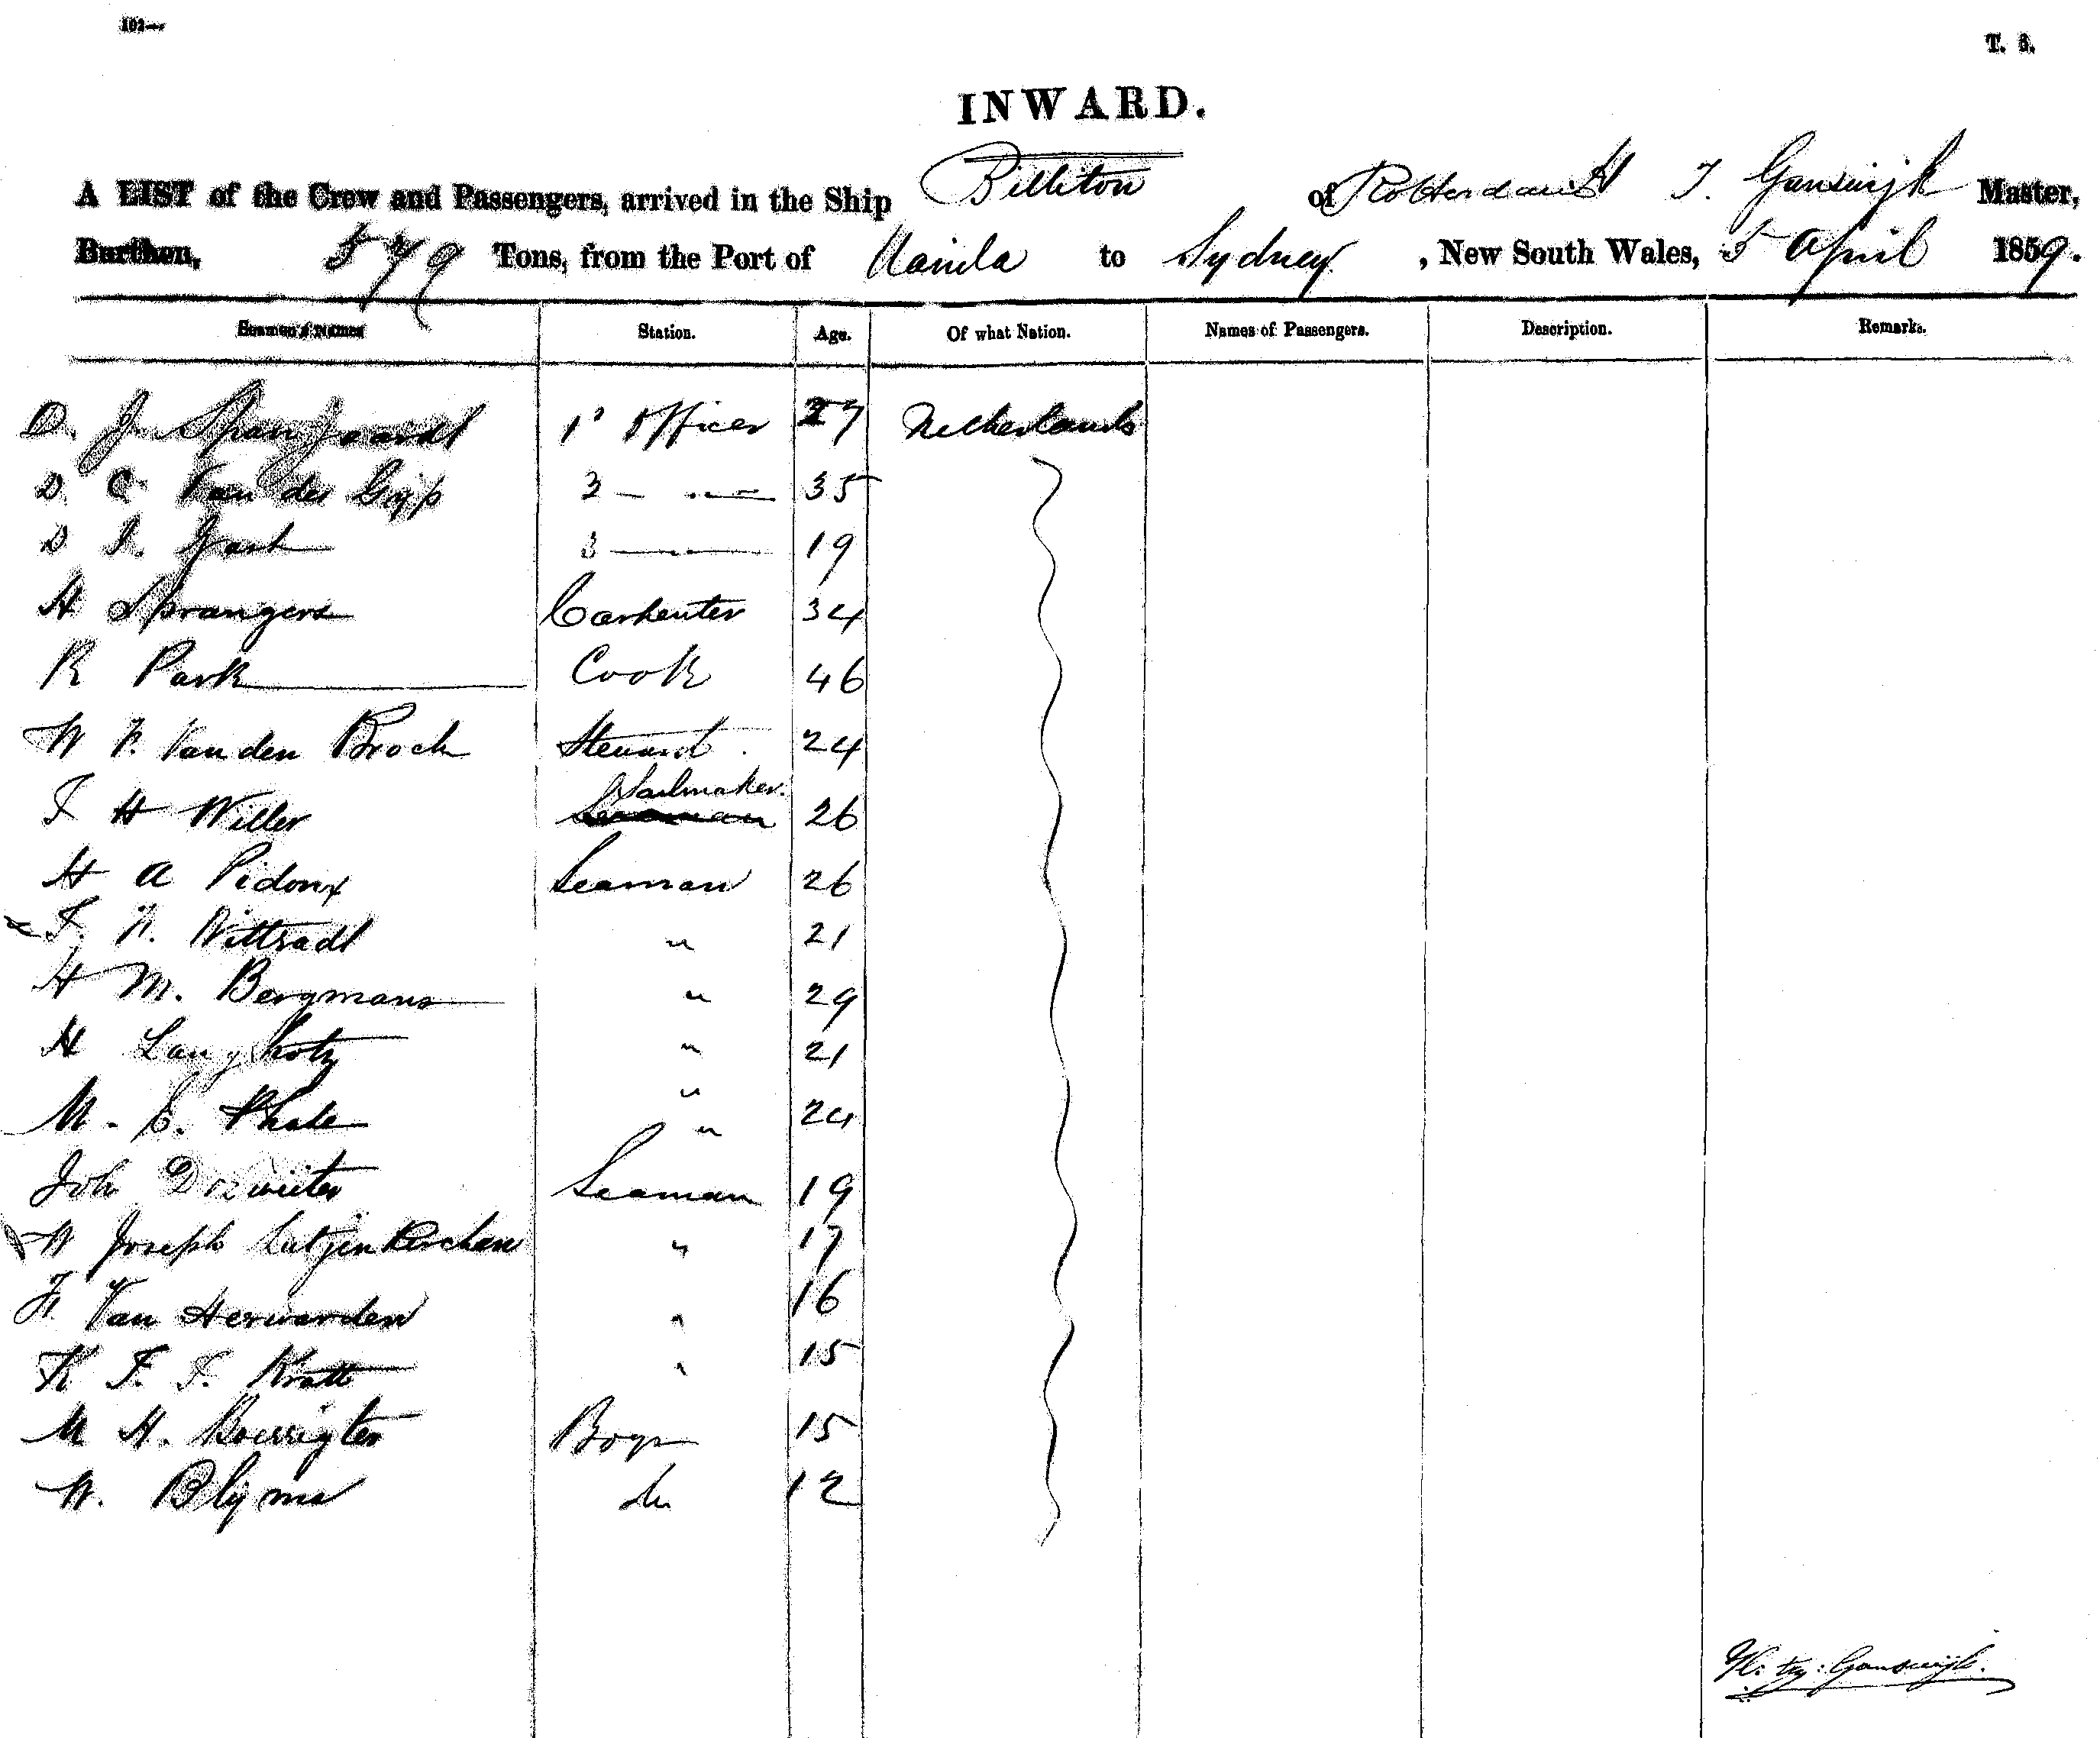 102—
T. 5.
INWARD.
A LIST of the Crew and Passengers, arrived in the Ship Billiton of Rotterdam H T. Ganswijk Master,
Burthen, 579 Tons, from the Port of Manila to Sydney, New South Wales, 5 April 1859.
Seamen's Names Station. Age. Of what Nation. Names of Passengers. Description. Remarks.
D. J. Spanjaardt 1' Officer 27 Netherlands
D. C. Van der Gijp 2 — — 35
D 3 — 19
H Sprangers Carpenter 34
R Park Cook 46
W F. Van den Broek Steward 24
Sailmaker.
F H Willer Seaman 26
H A Pidoux Seaman 26
F. W. Wittsadt " 21
H M. Bergmans " 29
H Langholz " 21
M. " 24
"
Joh Seaman 19
W Joseph Lutzenkirchen " 17
F. Van Herwarden " 16
K F. F. Kratt " 15
M H. Boys 15
W. Blijma do 12
Ganswijk.